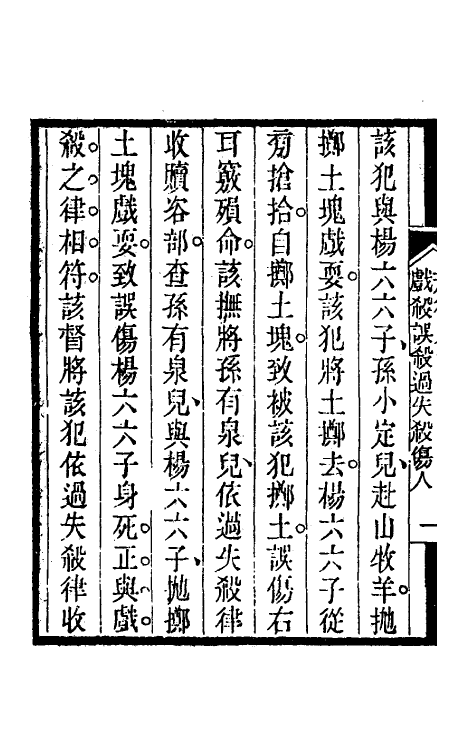 戲殺誤殺過失殺傷人 一
該犯與楊六六子、孫小定兒、赴山牧羊。拋
擲土塊戲耍。該犯將土擲去。楊六六子從
旁搶拾。自擲土塊。致被該犯擲土。誤傷右
耳竅殞命。該撫將孫有泉兒、依過失殺律
收贖咨部。查孫有泉兒、與楊六六子、拋擲
土塊戲耍。致誤傷楊六六子身死。正與戲。
殺。之。律。相。符。該督將該犯依過失殺律收